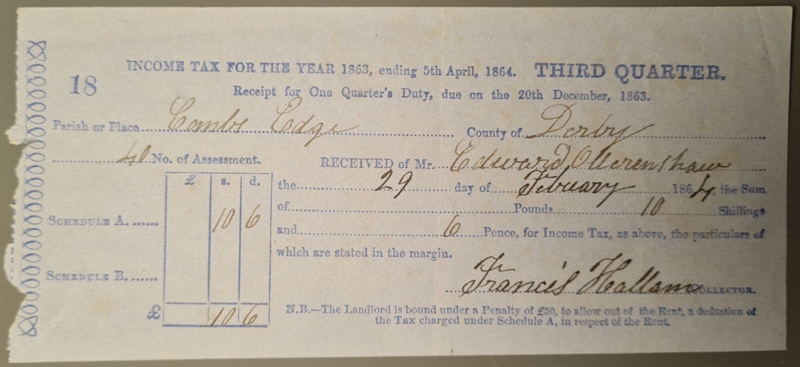 18
INCOME TAX FOR THE YEAR 1863, ending 5th April, 1864. THIRD QUARTER.
Receipt for One Quarter's Duty, due on the 20th December, 1863.
Parish or Place Combs Edge County of Derby
40 No. of Assessment. RECEIVED of Mr. Edward Ollerenshaw
£ s. d. the 29 day of February 1864 the Sum
of Pounds 10 Shillings
SCHEDULE A. 10 6 and 6 Pence, for Income Tax, as above, the particulars of
which are stated in the margin.
SCHEDULE B.
Francis Hallam COLLECTOR.
£ 10 6
N.B.—The Landlord is bound under a Penalty of £50, to allow out of the Rent, a deduction of
the Tax charged under Schedule A, in respect of the Rent.